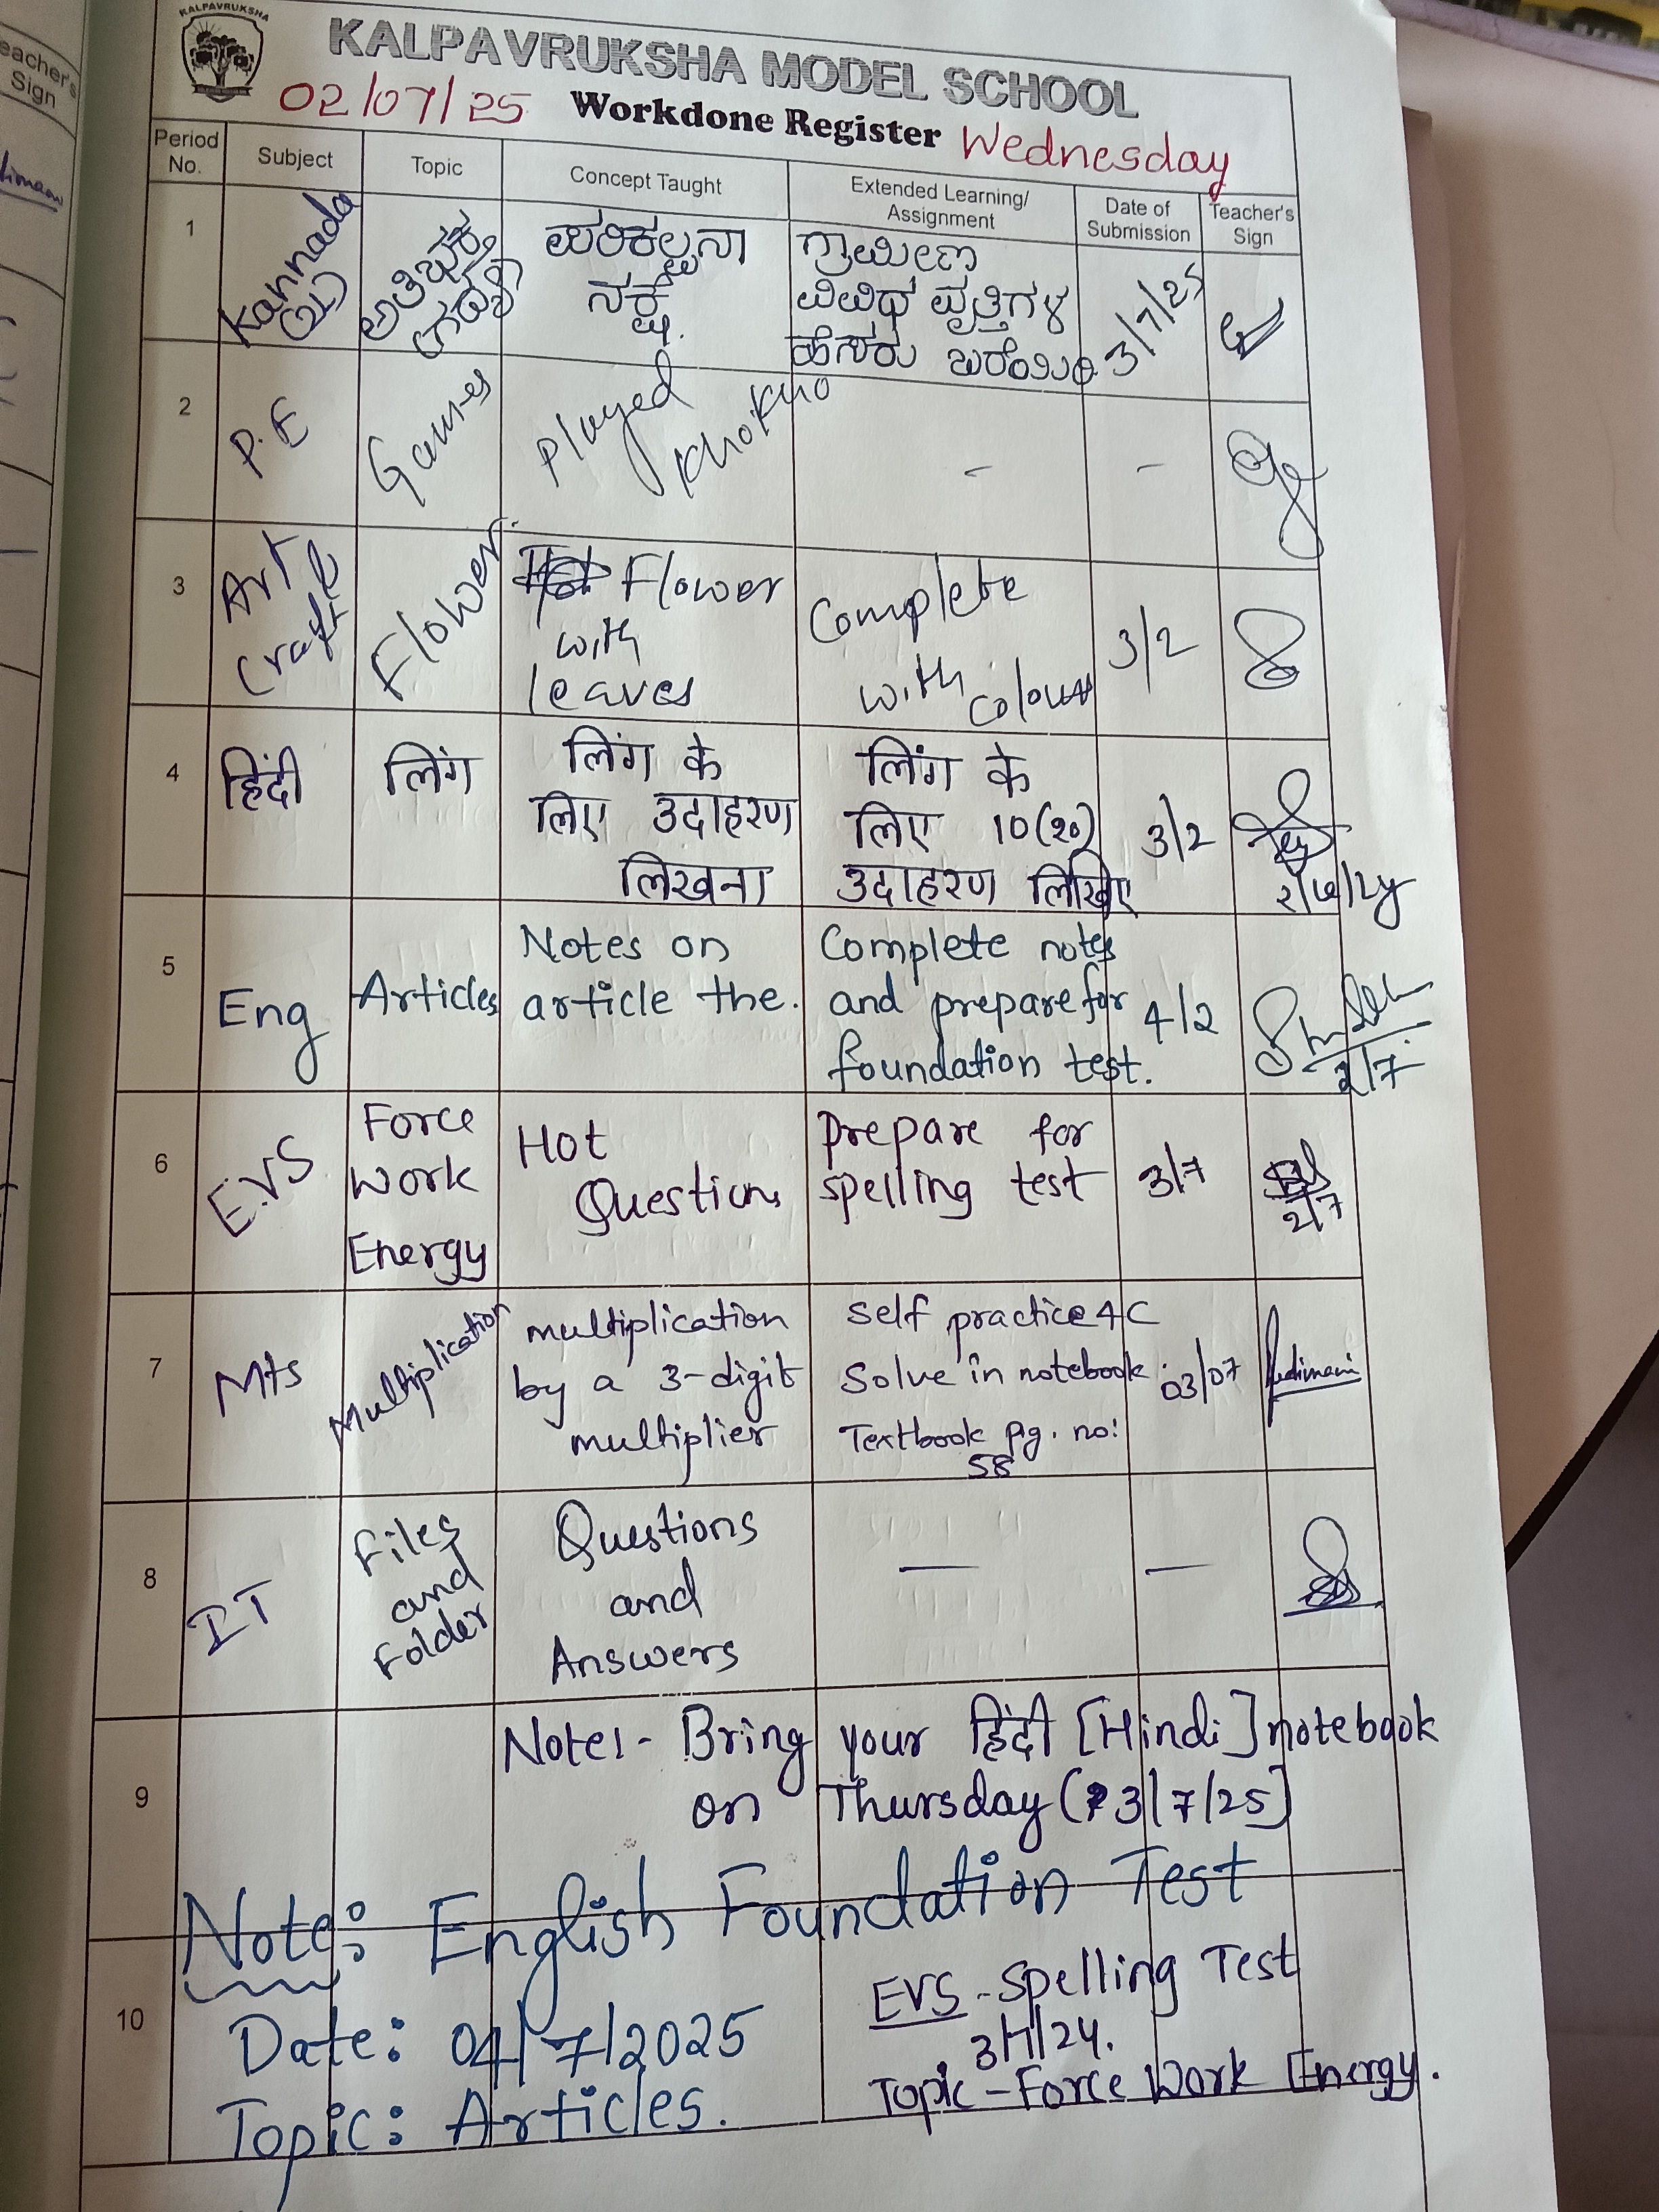 KALPAVRUKSHA
KALPAVRUKSHA MODEL SCHOOL
02/07/25 Workdone Register Wednesday
Period No. Subject Topic Concept Taught Extended Learning/ Assignment Date of Submission Teacher's Sign
eacher's
Sign
1 Kannada
ಪರಿಕಲ್ಪನಾ
ನಕ್ಷೆ.
ಗ್ರಾಮೀಣ
ವಿವಿಧ ವೃತ್ತಿಗಳ
ಹೆಸರು ಬರೆಯಿರಿ
3/7/25
2 P.E Games Played
KhoKho
- -
3 Art
Craft
Flower
Flower
with
leaves
Complete
with colours
3/2
4 हिंदी लिंग
लिंग के
लिए उदाहरण
लिखना
लिंग के
लिए 10(१०)
उदाहरण लिखिए
3/2
5 Eng Articles
Notes on
article the.
Complete notes
and prepare for
foundation test.
4/2
2/7
6 E.VS
Force
Work
Energy
Hot
Questions
Prepare for
spelling test
3/7
2/7
7 Mts Multiplication
multiplication
by a 3-digit
multiplier
Self practice 4C
Solve in notebook
Textbook pg. no:
58
03/07
8 IT
Files
and
Folder
Questions
and
Answers
— —
9
Note1- Bring your हिंदी [Hindi] notebook
on Thursday (3/7/25]
Note: English Foundation Test
10
Date: 04/7/2025
Topic: Articles.
EVS - Spelling Test
3/7/24.
Topic - Force Work Energy.